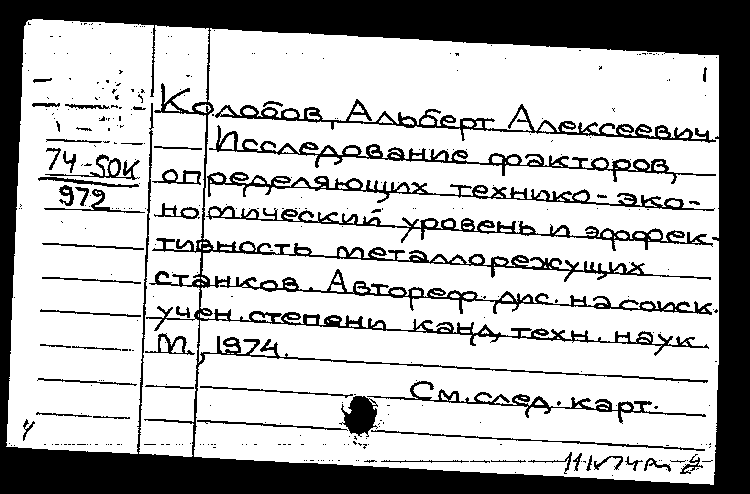 1
Колобов, Альберт Алексеевич.
Исследование факторов,
74-5ОК
972
определяющих технико-эко-
номический уровень и эффек-
тивность металлорежущих
станков. Автореф. дис. на соиск.
учен. степени канд. техн. наук.
М., 1974.
См. след. карт.